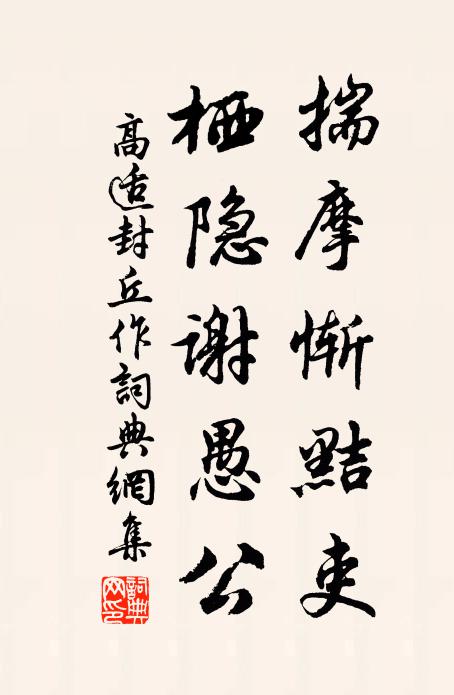 揣摩惭黠吏
栖隐谢愚公
高适封丘作詞典網集
詞典网印